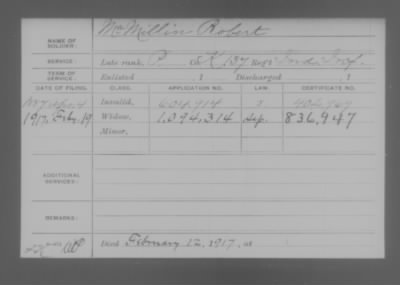 NAME OF SOLDIER: McMillin Robert
SERVICE: Late rank, P. Co. K, 137 Reg't Ind. Inf.
TERM OF SERVICE: Enlisted , 1 Discharged , 1
DATE OF FILING. CLASS. APPLICATION NO. LAW. CERTIFICATE NO.
1887 Apr. 4 Invalid, 604,914
1917, Feb. 19 Widow, 1,094,314 836,947
Minor,
ADDITIONAL SERVICES:
REMARKS:
Died February 12, 1917, at